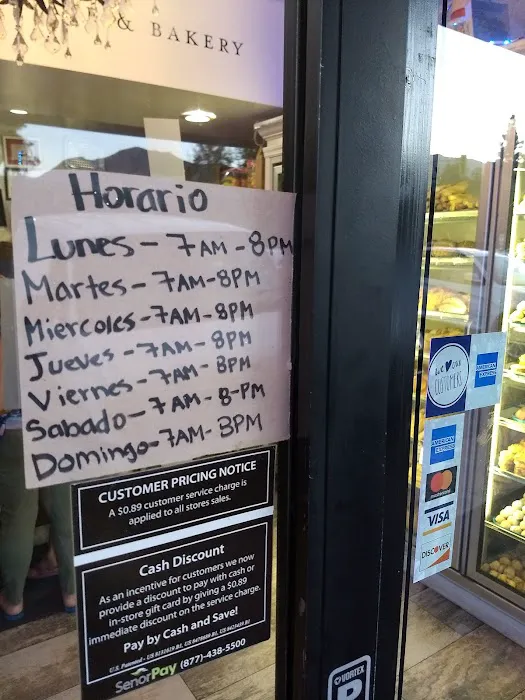 & BAKERY
Horario
Lunes - 7AM - 8PM
Martes - 7AM - 8PM
Miercoles - 7AM - 8PM
Jueves - 7AM - 8PM
Viernes - 7AM - 8PM
Sabado - 7AM - 8-PM
Domingo - 7AM - 3PM
CUSTOMER PRICING NOTICE
A $0.89 customer service charge is
applied to all stores sales.
Cash Discount
As an incentive for customers we now
provide a discount to pay with cash or
in-store gift card by giving a $0.89
immediate discount on the service charge.
Pay by Cash and Save!
SenorPay (877)-438-5500
we ♥ our
CUSTOMERS
AMERICAN
EXPRESS
AMERICAN
EXPRESS
mastercard
VISA
DISCOVER
VORTEX